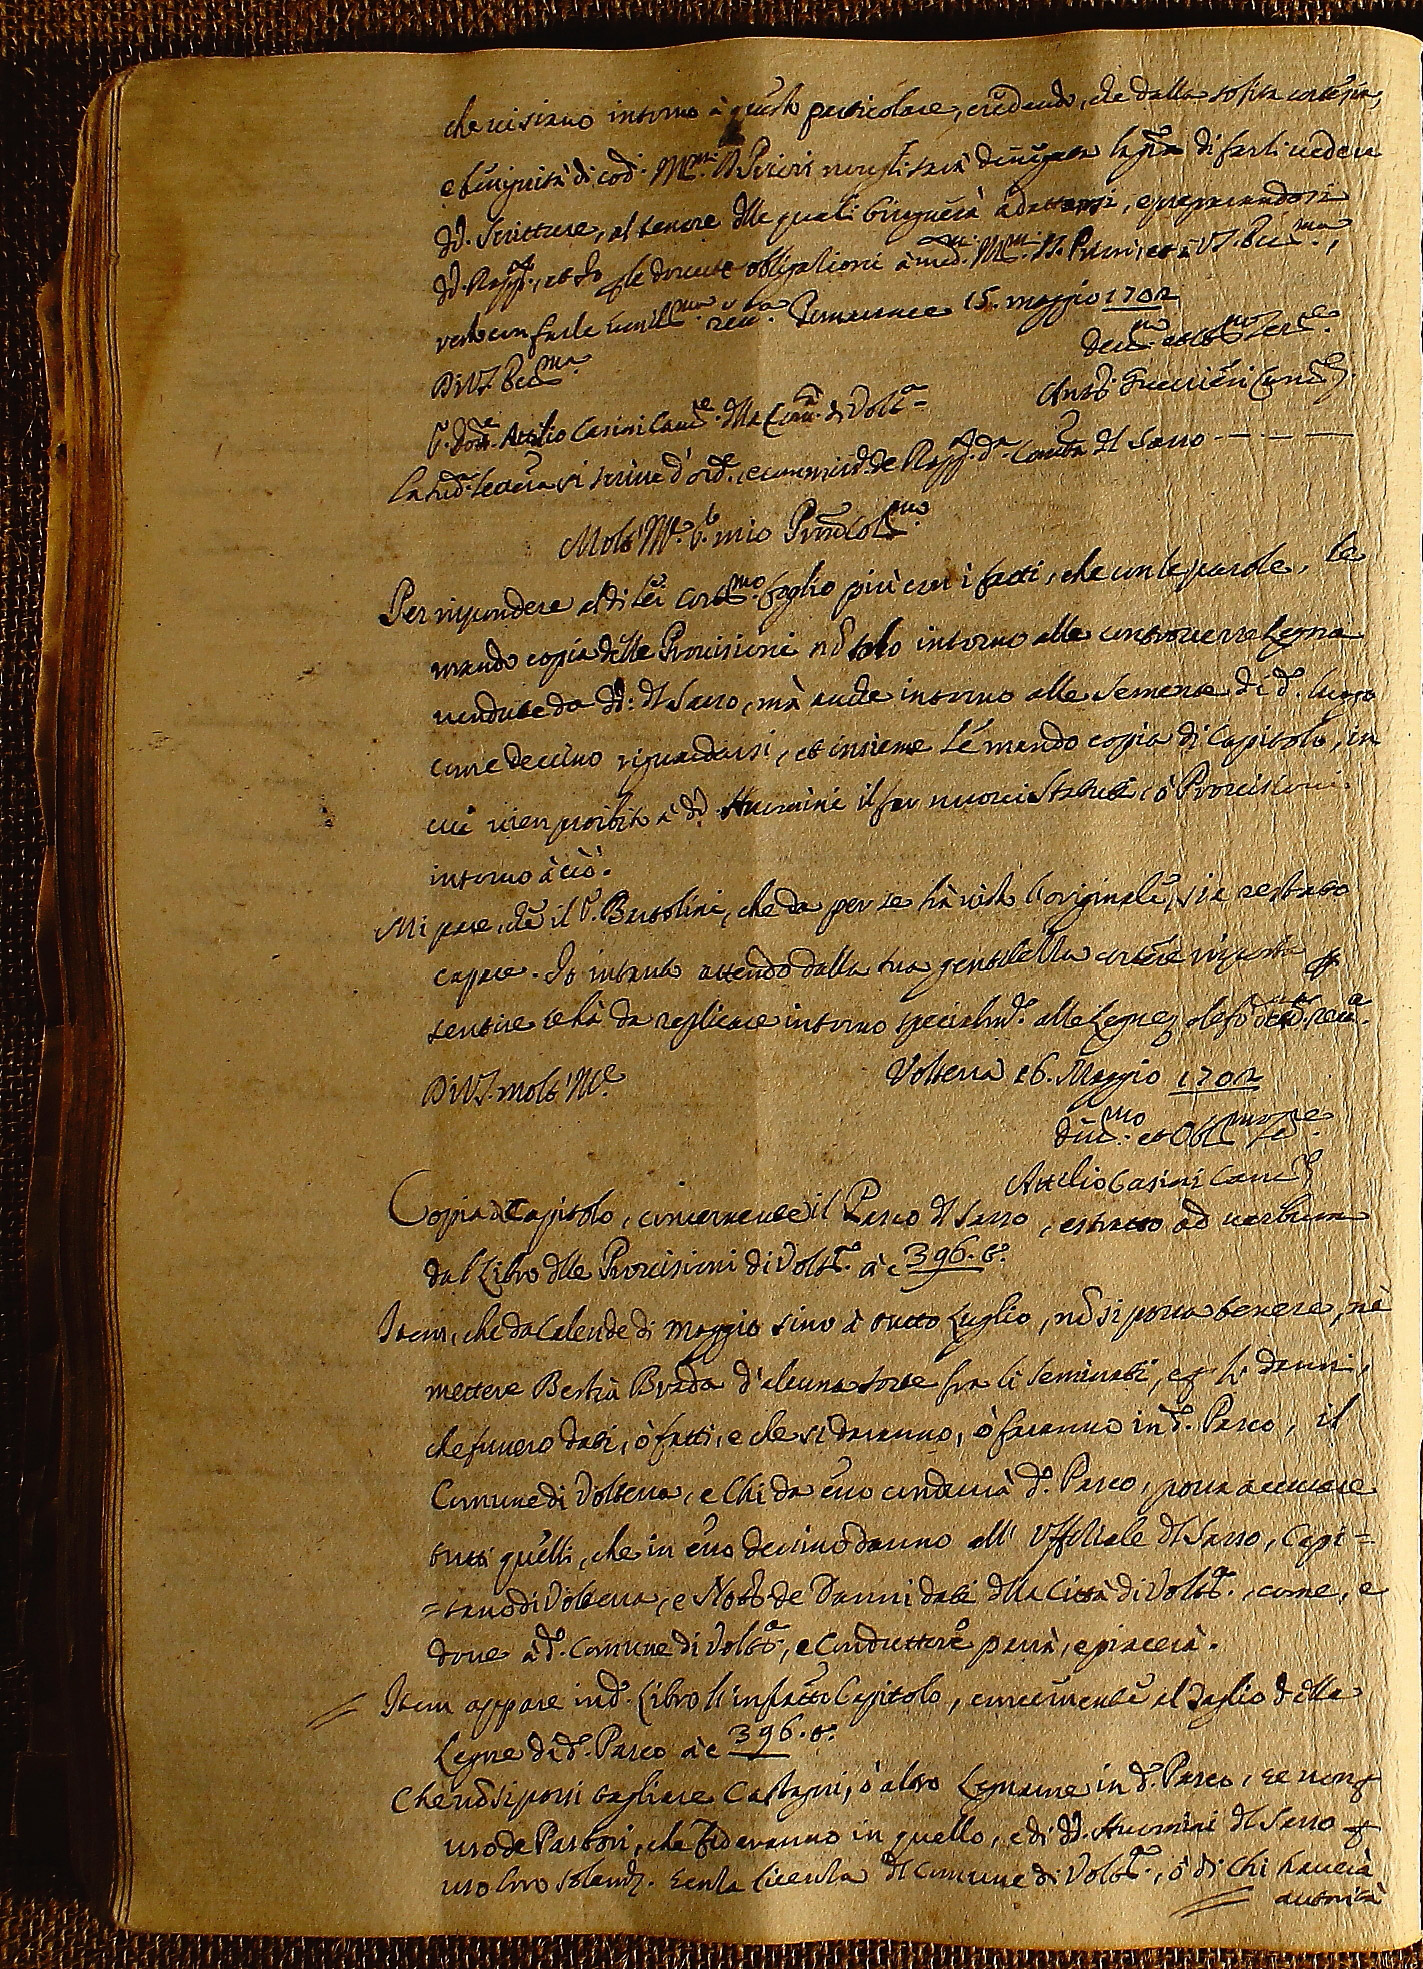 che ui siano intorno à questo particolare, credendo, che dalla solita cortesia,
e benignità di cod: SS.ri Priori non gli sarà denegata la gra di farli uedere
dd. Scritture, al tenore dlle quali bisognerà adattarsi, e preparandosi
dd. Rapp.ti, et Io p le douute obligationi à med.mi Ill.mi SS. Priori, et à VS. Ecc.ma,
resto con farle umil.ma reu.a Pomarance 15. maggio 1702
Di VS. Ecc.ma
Deu.mo et Obb.mo Ser.e
Ant.o Guerrieri Canc.e
S. Dott.e Attilio Casini Canc.e dlla Com.à di Volt.a =
La sud.a lettera si scriue d'ord.e, e commiss.e de Rapp.ti d.a Comtà dl Sasso
Molt' Ill.e S.r mio Pron Col.mo
Per rispondere al di Lei cort.mo foglio più con i fatti, che con le parole, Le
mando copia delle Prouisioni nō solo intorno alle controuerse Legna
uendute da dd: dl Sasso, mà anche intorno alle Semente di d.o luogo
come deuino riguardarsi, et insieme Le mando copia di Capitolo, in
cui uien proibito à dd. Huomini il far nuoui Statuti, ò Prouisioni
intorno à ciò.
Mi pare, che il S.r Bartolini, che da per se hà uisto l'originale, sia restato
capace. Io intanto attendo dalla sua gentilezza cortese risposta p
sentire se hà da replicare intorno specialm.e alle Legne, e le fò deu.ma reu.a
Di VS. molt' Ill.e
Volterra 16. Maggio 1702
Deu.mo et Obb.mo Se.e
Attilio Casini Canc.e
Copia di Capitolo, concernente il Parco dl Sasso, estratto ad uerbum
dal Libro dlle Prouisioni di Volt.a à c 396. t.o
Item, che da Calende di Maggio sino à tutto Luglio, nō si possa tenere, nè
mettere Bestia Brada d'alcuna sorte fra li seminati, e p li danni,
che furero dati, ò fatti, e che si daranno, ò faranno in d.o Parco, il
Comune di Volterra, e Chi da esso condurrà d.o Parco, possa accusare
tutti quelli, che in esso dessino danno all' Vffitiale dl Sasso, Capi=
=tano di Volterra, e Not.o de Danni dati dlla Città di Volt.a, come, e
doue à d.o Comune di Volt.a, e Conduttore parrà, e piacerà.
Item appare in d.o Libro l'infratto Capitolo, concernente al Taglio della
Legne di d.o Parco à c 396. t.o
Che nō si possi tagliare Castagni, ò altro Legname in d.o Parco, se non p
uso de Pastori, che fideranno in quello, e di dd. Huomini dl Sasso p
uso loro solam.e senza licenza dl Comune di Volt.a, ò di chi hauerà
autorità